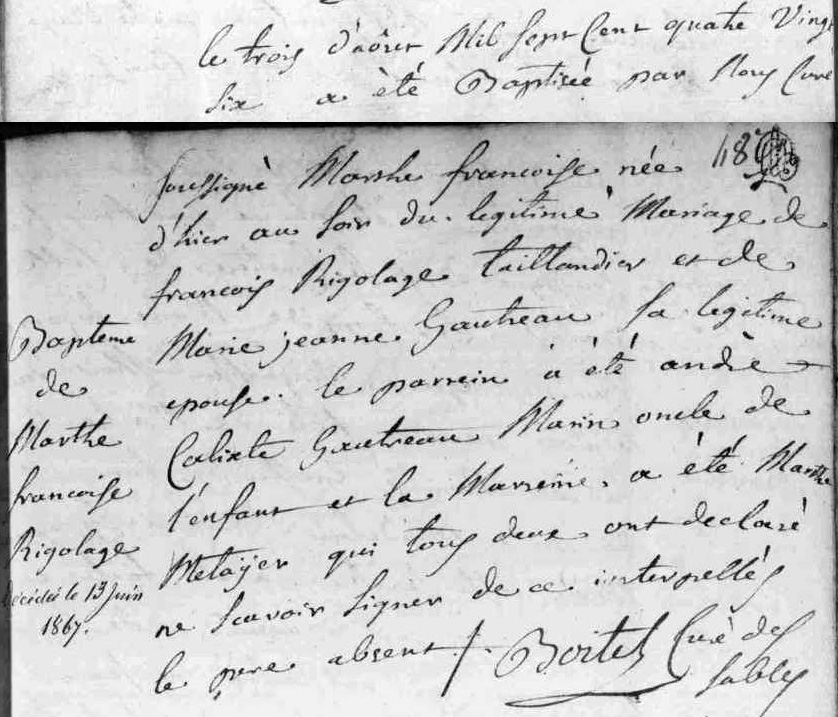 le trois d'aôut Mil Sept Cent quatre Vingt
Six a été Baptisée par Nous Curé
soussigné Marthe francoise née
d'hier au soir du legitime Mariage de
francois Rigolage taillandier et de
Marie jeanne Gautreau sa legitime
epouse. le parrein a été andré
Calixte Gautreau Marin oncle de
l'enfant et la Marreine a été Marthe
Metayer qui tous deux ont declaré
ne scavoir signer de ce interpellés
le pere absent /. Boitel Curé des
Sables
Bapteme
de
Marthe
francoise
Rigolage
décédée le 13 Juin
1867.